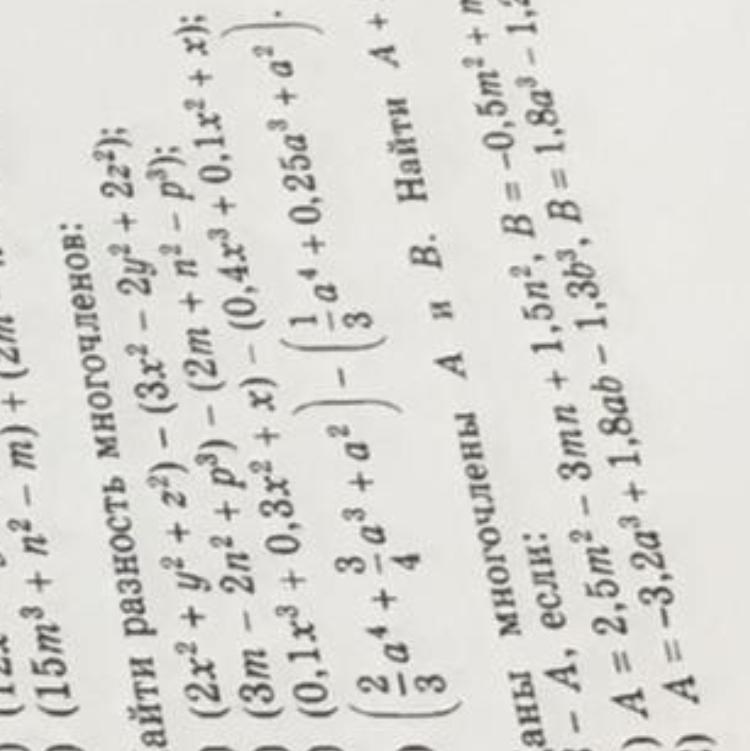 (15m³ + n² − m) + (2m
айти разность многочленов:
(2x² + y² + z²) − (3x² − 2y² + 2z²);
(3m − 2n² + p³) − (2m + n² − p³);
(0,1x³ + 0,3x² + x) − (0,4x³ + 0,1x² + x);
(2/3 a⁴ + 3/4 a³ + a²) − (1/3 a⁴ + 0,25a³ + a²).
аны многочлены A и B. Найти A +
− A, если:
) A = 2,5m² − 3mn + 1,5n², B = −0,5m² + m
) A = −3,2a³ + 1,8ab − 1,3b³, B = 1,8a³ − 1,2